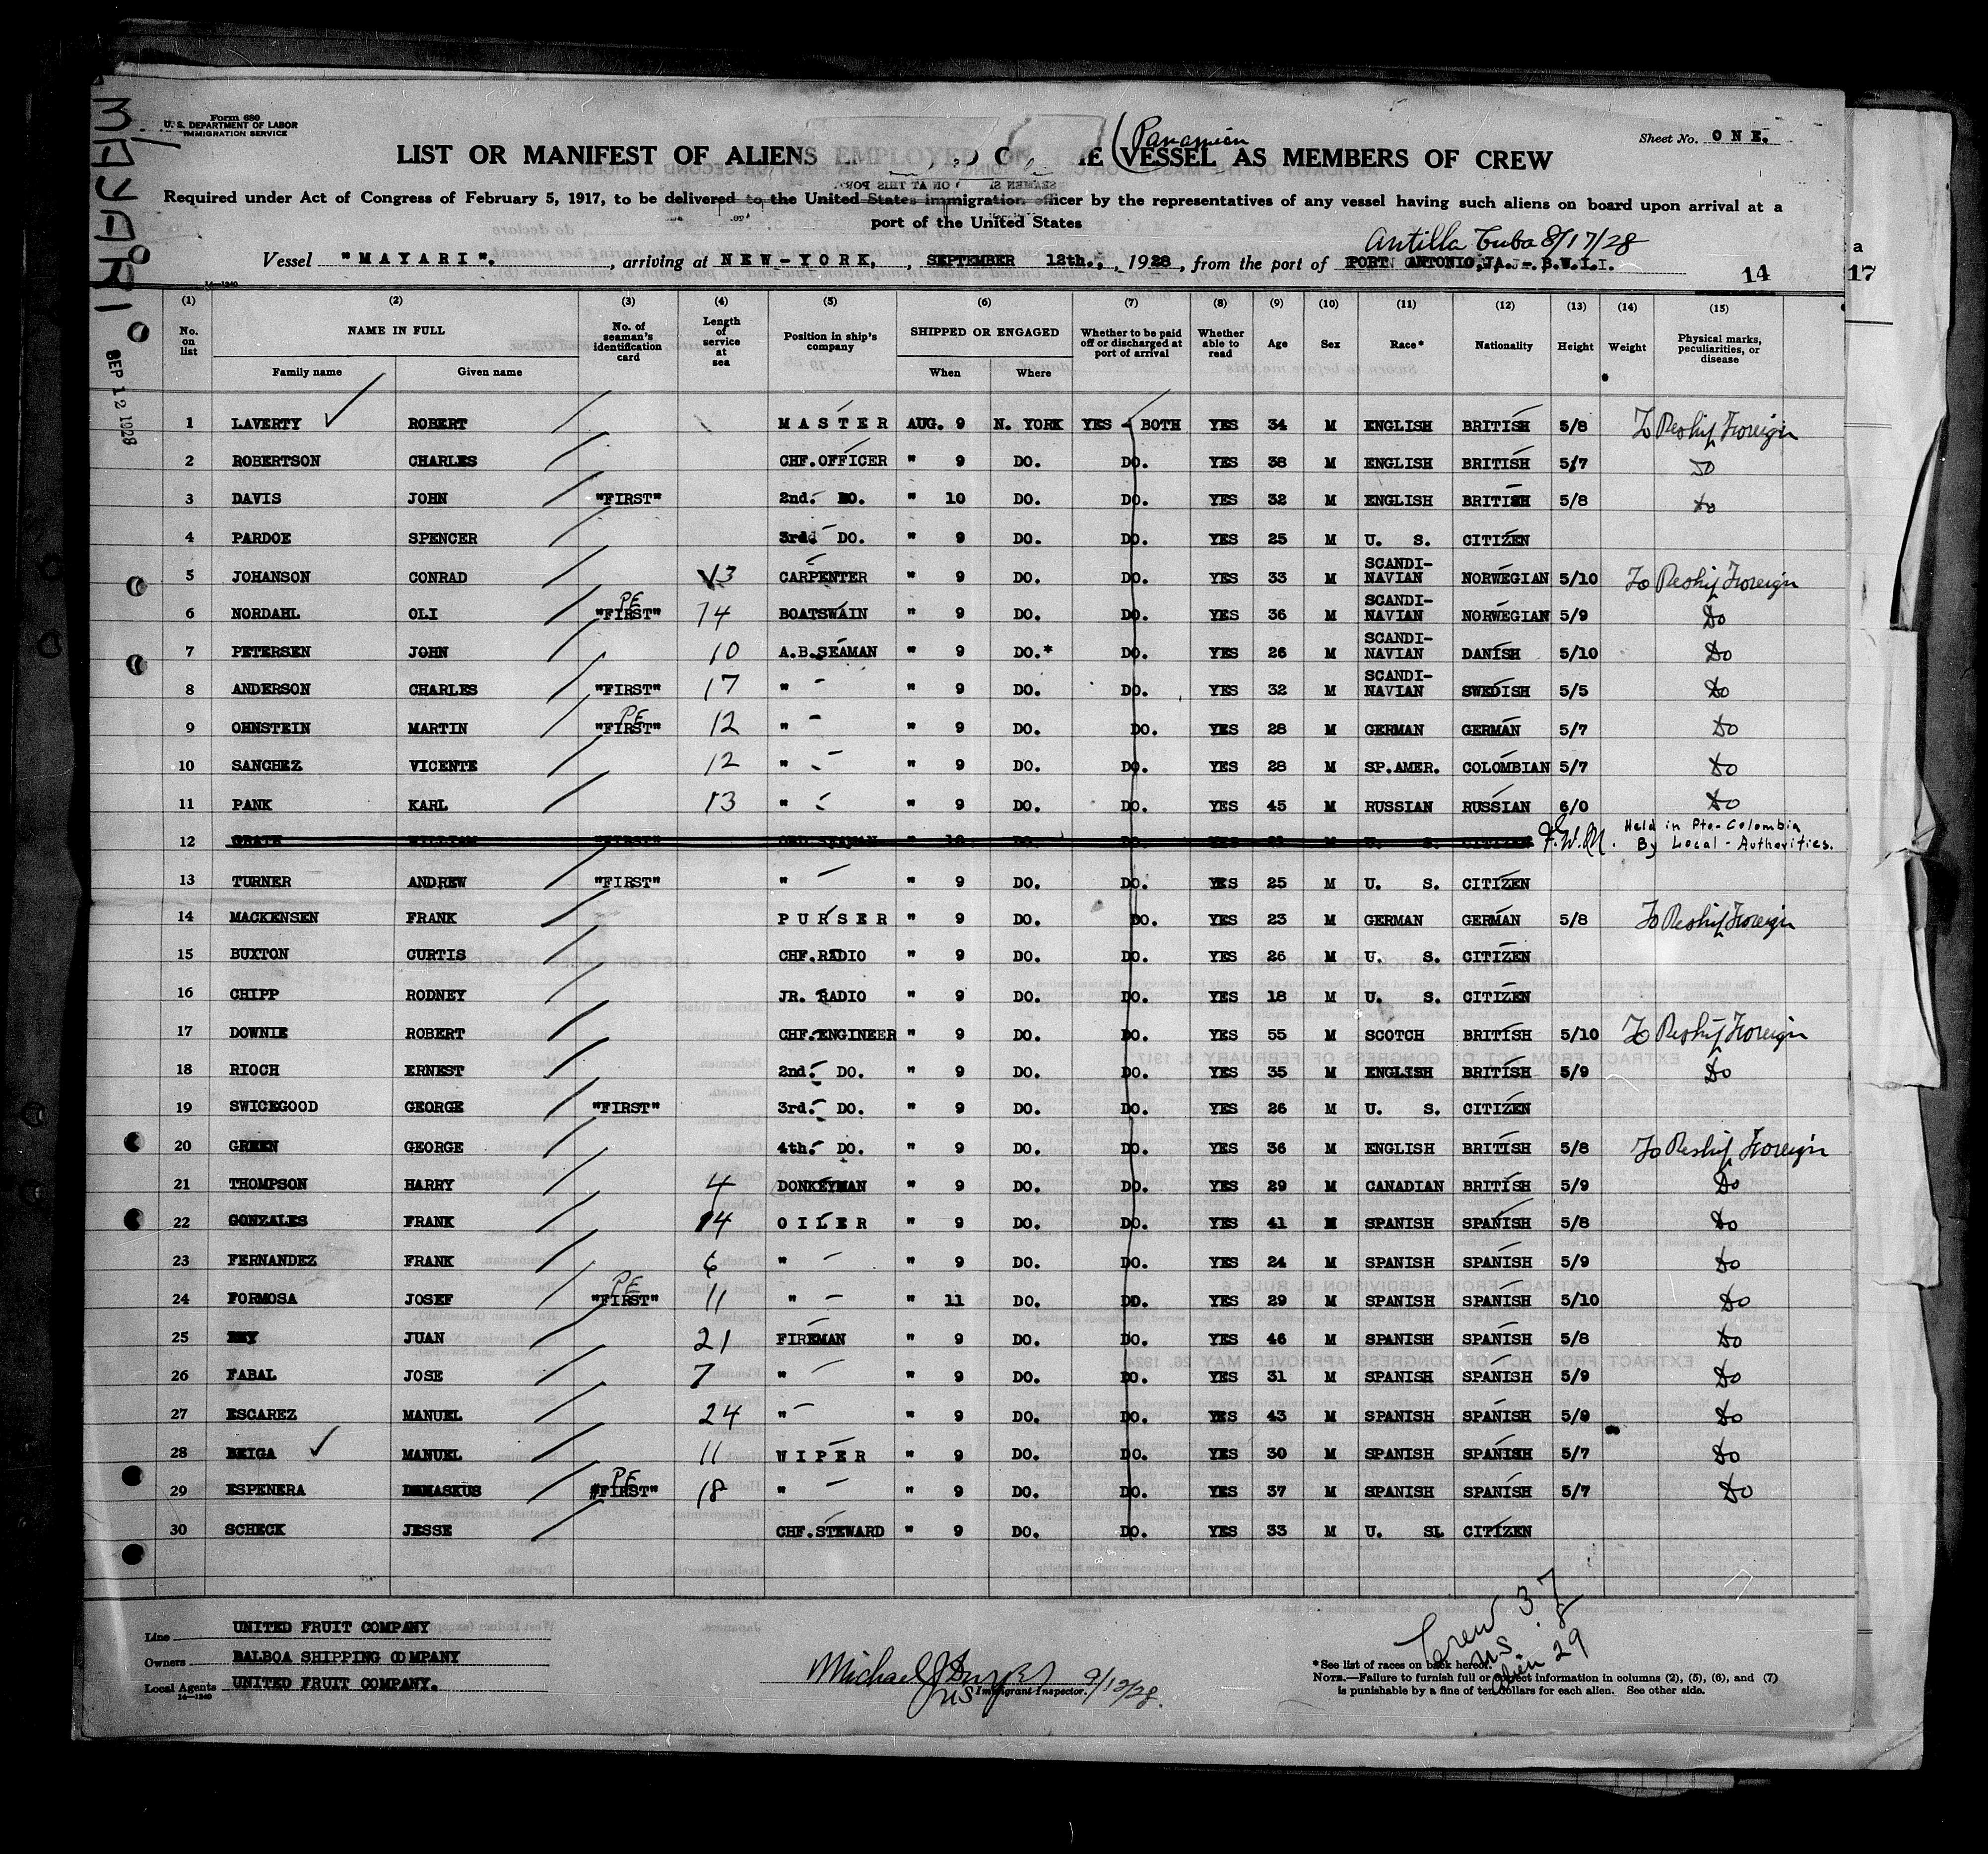 MAYARI
SEP 12 1928
Form 680
U. S. DEPARTMENT OF LABOR
IMMIGRATION SERVICE
Sheet No. ONE.
(Panamian
LIST OR MANIFEST OF ALIENS EMPLOYED ON THE VESSEL AS MEMBERS OF CREW
Required under Act of Congress of February 5, 1917, to be delivered to the United States immigration officer by the representatives of any vessel having such aliens on board upon arrival at a
port of the United States
Antilla Cuba 8/17/28
Vessel "MAYARI"., arriving at NEW-YORK, SEPTEMBER 12th., 1928, from the port of PORT ANTONIO, JA.-B.W.I.
14
17
14—1240
(1) (2) (3) (4) (5) (6) (7) (8) (9) (10) (11) (12) (13) (14) (15)
No. on list NAME IN FULL No. of seaman's identification card Length of service at sea Position in ship's company SHIPPED OR ENGAGED Whether to be paid off or discharged at port of arrival Whether able to read Age Sex Race* Nationality Height Weight Physical marks, peculiarities, or disease
Family name Given name When Where
1 LAVERTY ROBERT MASTER AUG. 9 N. YORK YES - BOTH YES 34 M ENGLISH BRITISH 5/8 To Reship Foreign
2 ROBERTSON CHARLES CHF.OFFICER " 9 DO. DO. YES 38 M ENGLISH BRITISH 5/7 Do
3 DAVIS JOHN "FIRST" 2nd. DO. " 10 DO. DO. YES 32 M ENGLISH BRITISH 5/8 Do
4 PARDOE SPENCER 3rd. DO. " 9 DO. DO. YES 25 M U. S. CITIZEN
5 JOHANSON CONRAD 13 CARPENTER " 9 DO. DO. YES 33 M SCANDI-NAVIAN NORWEGIAN 5/10 To Reship Foreign
6 NORDAHL OLI PE "FIRST" 14 BOATSWAIN " 9 DO. DO. YES 36 M SCANDI-NAVIAN NORWEGIAN 5/9 Do
7 PETERSEN JOHN 10 A.B.SEAMAN " 9 DO.* DO. YES 26 M SCANDI-NAVIAN DANISH 5/10 Do
8 ANDERSON CHARLES "FIRST" 17 " " 9 DO. DO. YES 32 M SCANDI-NAVIAN SWEDISH 5/5 Do
9 OHNSTEIN MARTIN PE "FIRST" 12 " " 9 DO. DO. YES 28 M GERMAN GERMAN 5/7 Do
10 SANCHEZ VICENTE 12 " " 9 DO. DO. YES 28 M SP.AMER. COLOMBIAN 5/7 Do
11 PANK KARL 13 " " 9 DO. DO. YES 45 M RUSSIAN RUSSIAN 6/0 Do
12 WILLIAM "FIRST" ORD.SEAMAN " 10 DO. DO. YES 21 M U. S. CITIZEN F.W.M. Held in Pto-Colombia By Local-Authorities.
13 TURNER ANDREW "FIRST" " " 9 DO. DO. YES 25 M U. S. CITIZEN
14 MACKENSEN FRANK PURSER " 9 DO. DO. YES 23 M GERMAN GERMAN 5/8 To Reship Foreign
15 BUXTON CURTIS CHF.RADIO " 9 DO. DO. YES 26 M U. S. CITIZEN
16 CHIPP RODNEY JR. RADIO " 9 DO. DO. YES 18 M U. S. CITIZEN
17 DOWNIE ROBERT CHF.ENGINEER " 9 DO. DO. YES 55 M SCOTCH BRITISH 5/10 To Reship Foreign
18 RIOCH ERNEST 2nd. DO. " 9 DO. DO. YES 35 M ENGLISH BRITISH 5/9 Do
19 SWICEGOOD GEORGE "FIRST" 3rd. DO. " 9 DO. DO. YES 26 M U. S. CITIZEN
20 GREEN GEORGE 4th. DO. " 9 DO. DO. YES 36 M ENGLISH BRITISH 5/8 To Reship Foreign
21 THOMPSON HARRY 4 DONKEYMAN " 9 DO. DO. YES 29 M CANADIAN BRITISH 5/9 Do
22 GONZALES FRANK 14 OILER " 9 DO. DO. YES 41 M SPANISH SPANISH 5/8 Do
23 FERNANDEZ FRANK 6 " " 9 DO. DO. YES 24 M SPANISH SPANISH 5/9 Do
24 FORMOSA JOSEF PE "FIRST" 11 " " 11 DO. DO. YES 29 M SPANISH SPANISH 5/10 Do
25 REY JUAN 21 FIREMAN " 9 DO. DO. YES 46 M SPANISH SPANISH 5/8 Do
26 FABAL JOSE 7 " " 9 DO. DO. YES 31 M SPANISH SPANISH 5/9 Do
27 ESCAREZ MANUEL 24 " " 9 DO. DO. YES 43 M SPANISH SPANISH 5/9 Do
28 BEIGA MANUEL 11 WIPER " 9 DO. DO. YES 30 M SPANISH SPANISH 5/7 Do
29 ESPENERA DAMASKUS PE "FIRST" 18 " " 9 DO. DO. YES 37 M SPANISH SPANISH 5/7 Do
30 SCHECK JESSE CHF.STEWARD " 9 DO. DO. YES 33 M U. S. CITIZEN
Crew 37
US 8
Alien 29
Line UNITED FRUIT COMPANY
Owners BALBOA SHIPPING COMPANY
Local Agents UNITED FRUIT COMPANY.
14—1240
Michael J
US Immigrant Inspector. 9/12/28.
*See list of races on back hereof.
NOTE.—Failure to furnish full or correct information in columns (2), (5), (6), and (7)
is punishable by a fine of ten dollars for each alien. See other side.